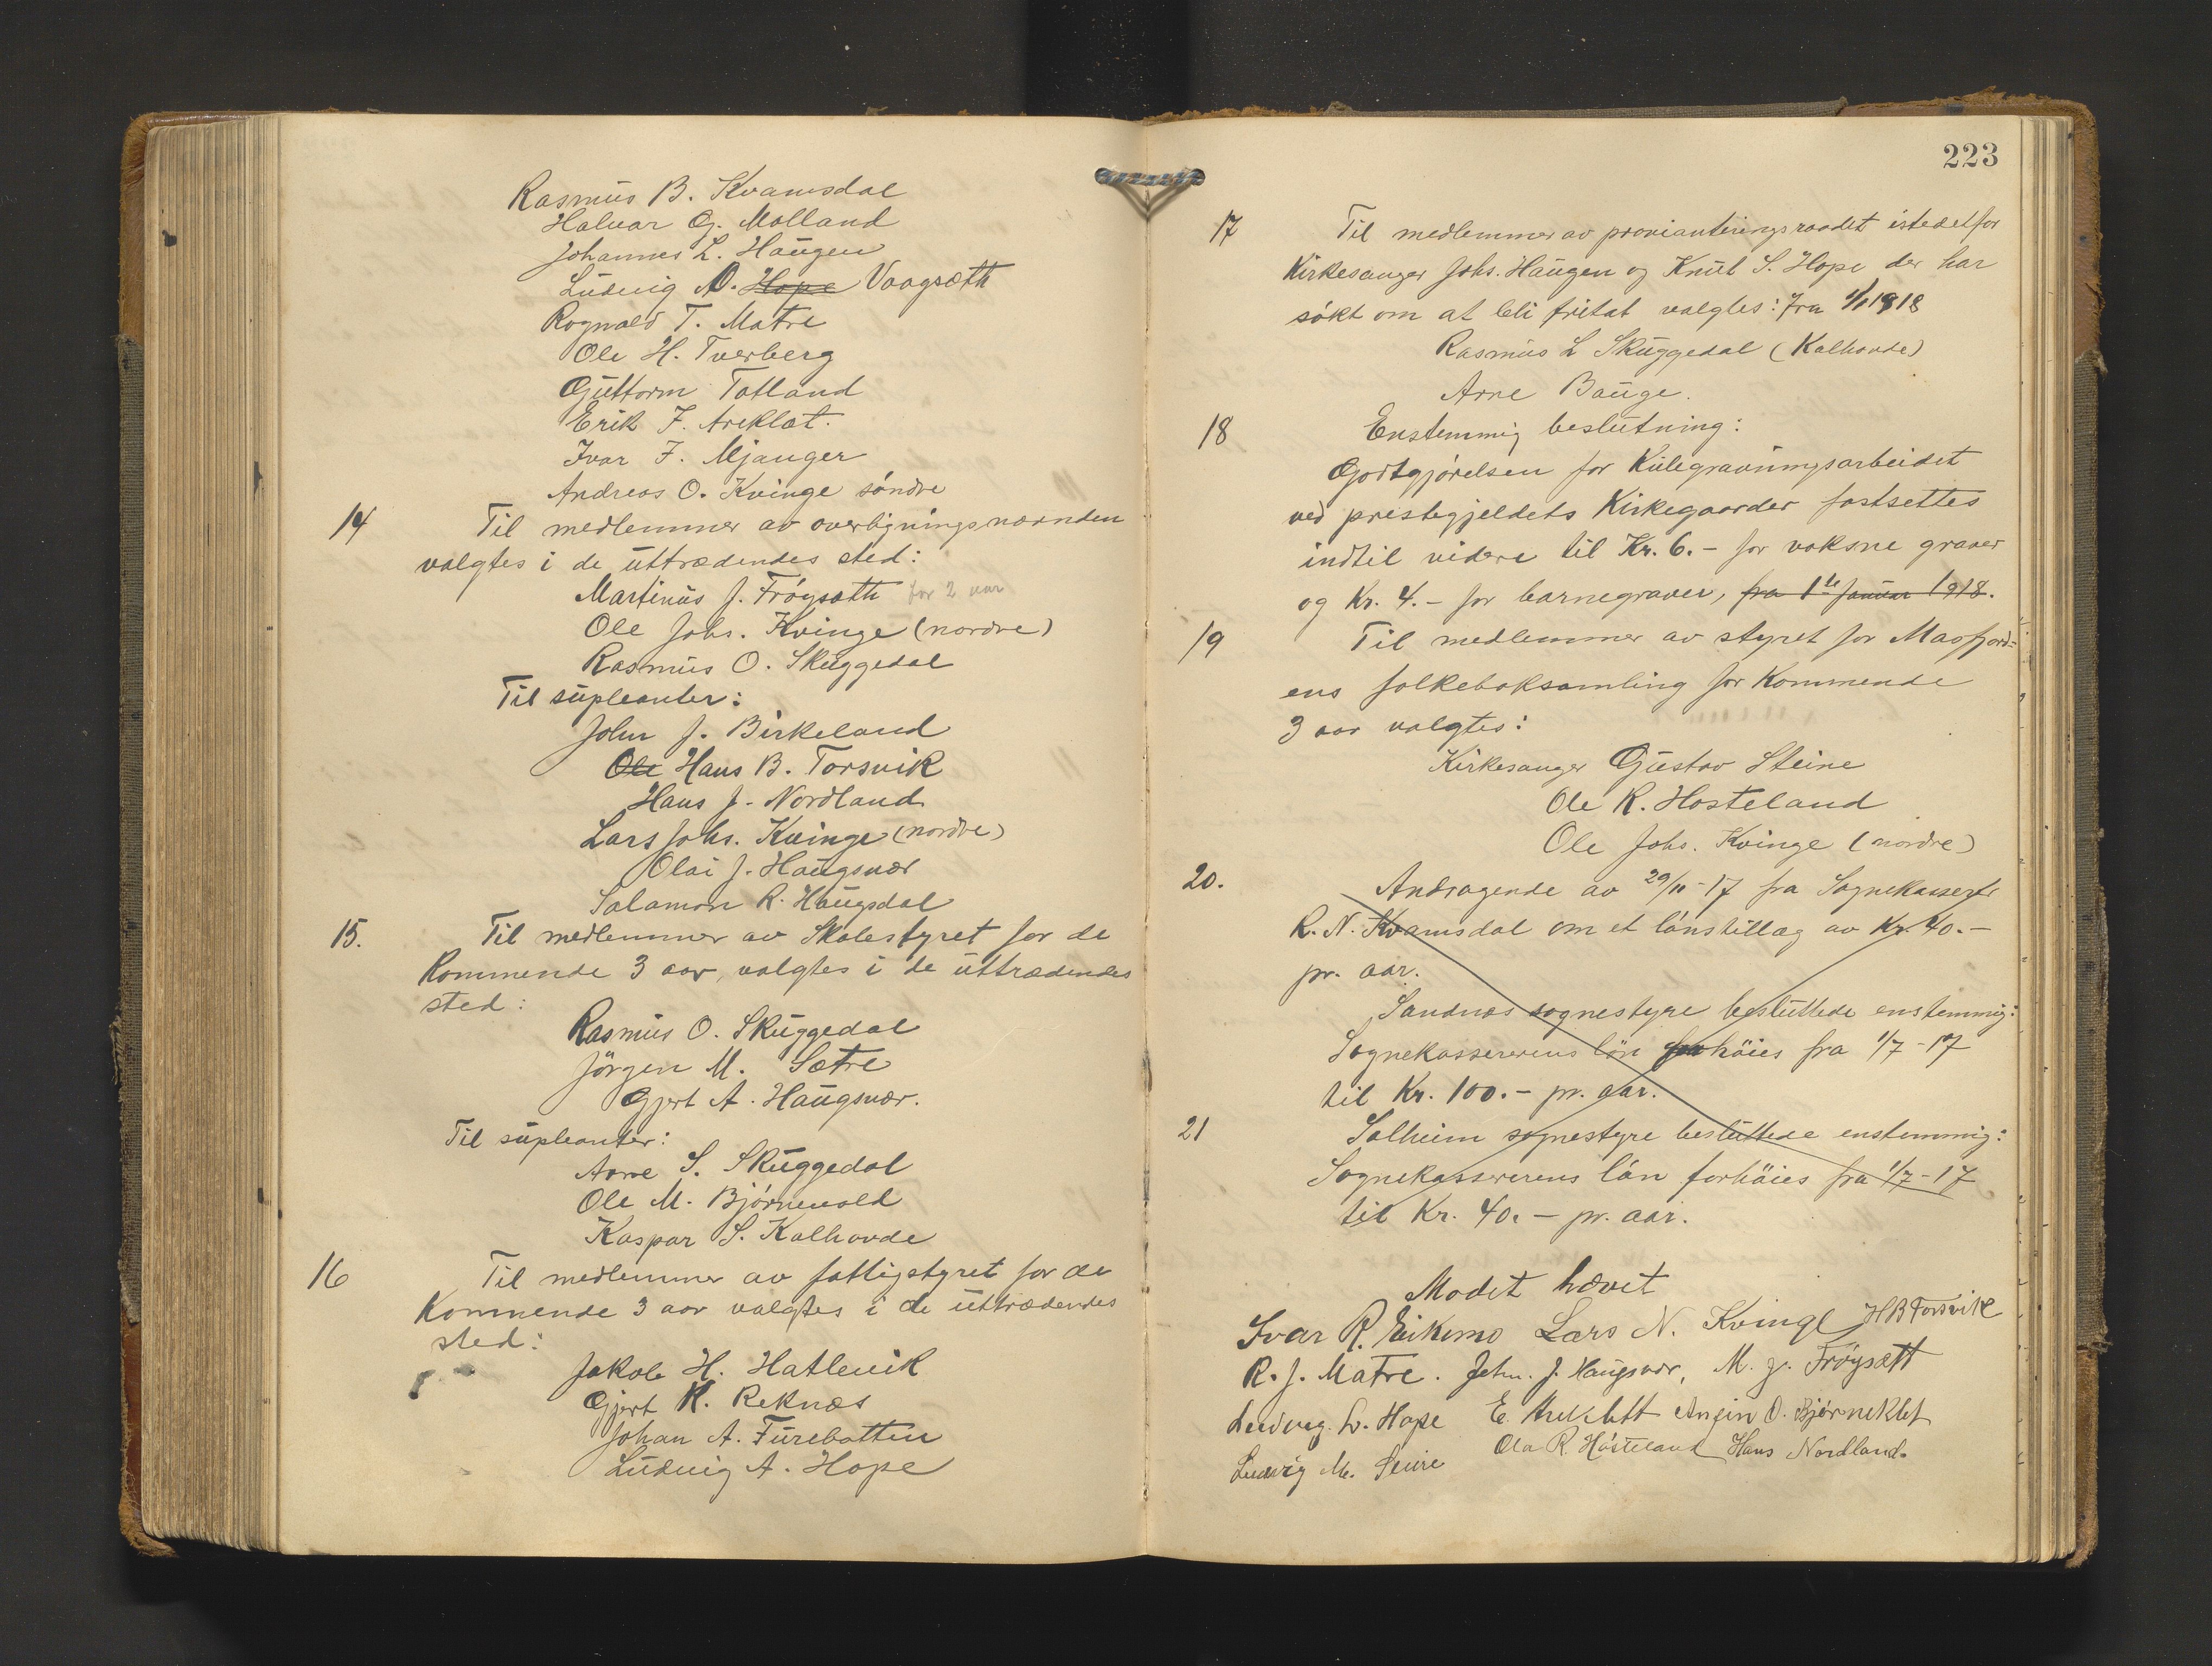 Rasmus B. Kvamsdal
Halvar G. Molland
Johannes L. Haugen
Ludvig A. Hope Vaagsæth
Rognald T. Matre
Ole H. Tverberg
Guttorm Totland
Erik J. Areklat.
Ivar J. Mjanger
Andreas O. Kvinge söndre
14 Til medlemmer av overligningsnævnden
valgtes i de uttrædendes sted:
Martinus J. Fröysæth for 2 aar
Ole Johs. Kvinge (nordre)
Rasmus O. Skuggedal
Til supleanter:
John J. Birkeland
Ole Hans B. Torsvik
Hans J. Nordland
Lars Johs. Kvinge (nordre)
Olai J. Haugsvær
Salamon R. Haugsdal
15. Til medlemmer av Skolestyret for de
kommende 3 aar, valgtes i de uttrædendes
sted:
Rasmus O. Skuggedal
Jörgen M. Sætre
Gjert A. Haugsvær.
Til supleanter:
Arne S. Skuggedal
Ole M. Björnevold
Kaspar S. Kalhovde
16 Til medlemmer av fattigstyret for de
kommende 3 aar valgtes i de uttrædendes
sted:
Jakob H. Hatlevik
Gjert K. Reknes
Johan A. Furebotten
Ludvig A. Hope
223
17 Til medlemmer av provianteringsraadet istedetfor
Kirkesanger Johs. Haugen og Knut S. Hope der har
sökt om at bli fritat valgtes: fra 1/1 1918
Rasmus L Skuggedal (Kalhovde)
Arne Bauge.
18 Enstemmig beslutning:
Godtgjörelsen for Kulegravningsarbeidet
ved prestegjeldets Kirkegaarder fastsettes
indtil videre til Kr. 6.- for voksne graver
og Kr. 4.- for barnegraver, fra 1te januar 1918.
19 Til medlemmer av styret for Masfjord-
ens folkeboksamling for kommende
3 aar valgtes:
Kirkesanger Gustav Steine
Ole R. Hosteland
Ole Johs. Kvinge (nordre)
20. Andragende av 29/11-17 fra Sognekasserer
R. N. Kvamsdal om et lönstillæg av Kr. 40.-
pr. aar.
Sandnes sognestyre besluttede enstemmig:
Sognekassererens lön forhöies fra 1/7-17
til Kr. 100.- pr. aar.
21 Solheim sognestyre besluttede enstemmig:
Sognekassererens lön forhöies fra 1/7-17
til Kr. 40.- pr. aar.
Modet hævet
Ivar R. Eikemo Lars N. Kvinge HB Torsvik
R. J. Matre. John. J. Haugsvær, M. J. Fröysætt
Ludvig. L. Hope E. Areklett Ansin O. Bjørneklet
Ludvig M. Ola R. Hosteland Hans Nordland.